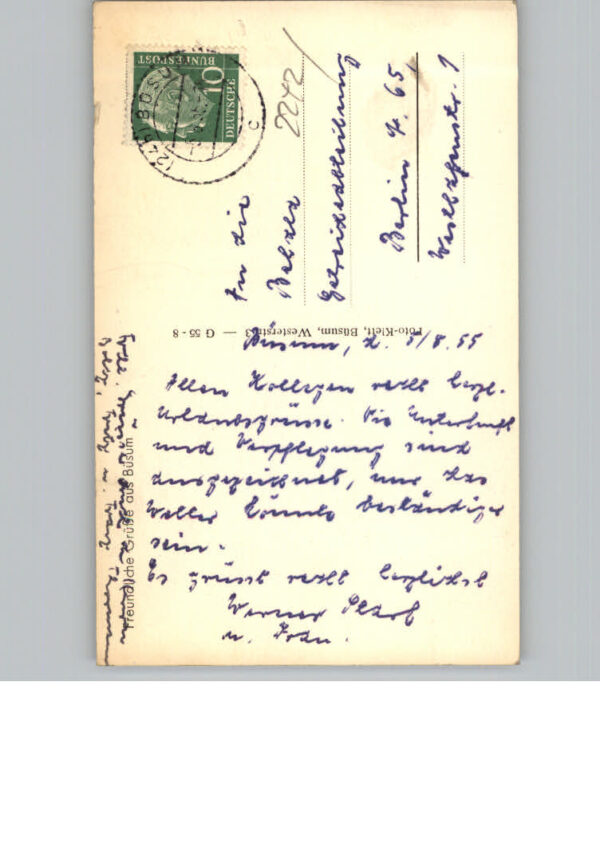 DEUTSCHE
BUNDESPOST
10
2242
An die
Getreideabteilung
Berlin N. 65
Foto-Klett, Büsum, Westerstr. 3 — G 55 - 8
Büsum, d. 5/8.55
Allen Kollegen recht herzl.
Urlaubsgrüsse. Die Unterkunft
und Verpflegung sind
ausgezeichnet, nur das
Wetter könnte beständiger
sein.
Es grüsst recht herzlichst
Werner
u. Frau.
Freundliche Grüße aus Büsum